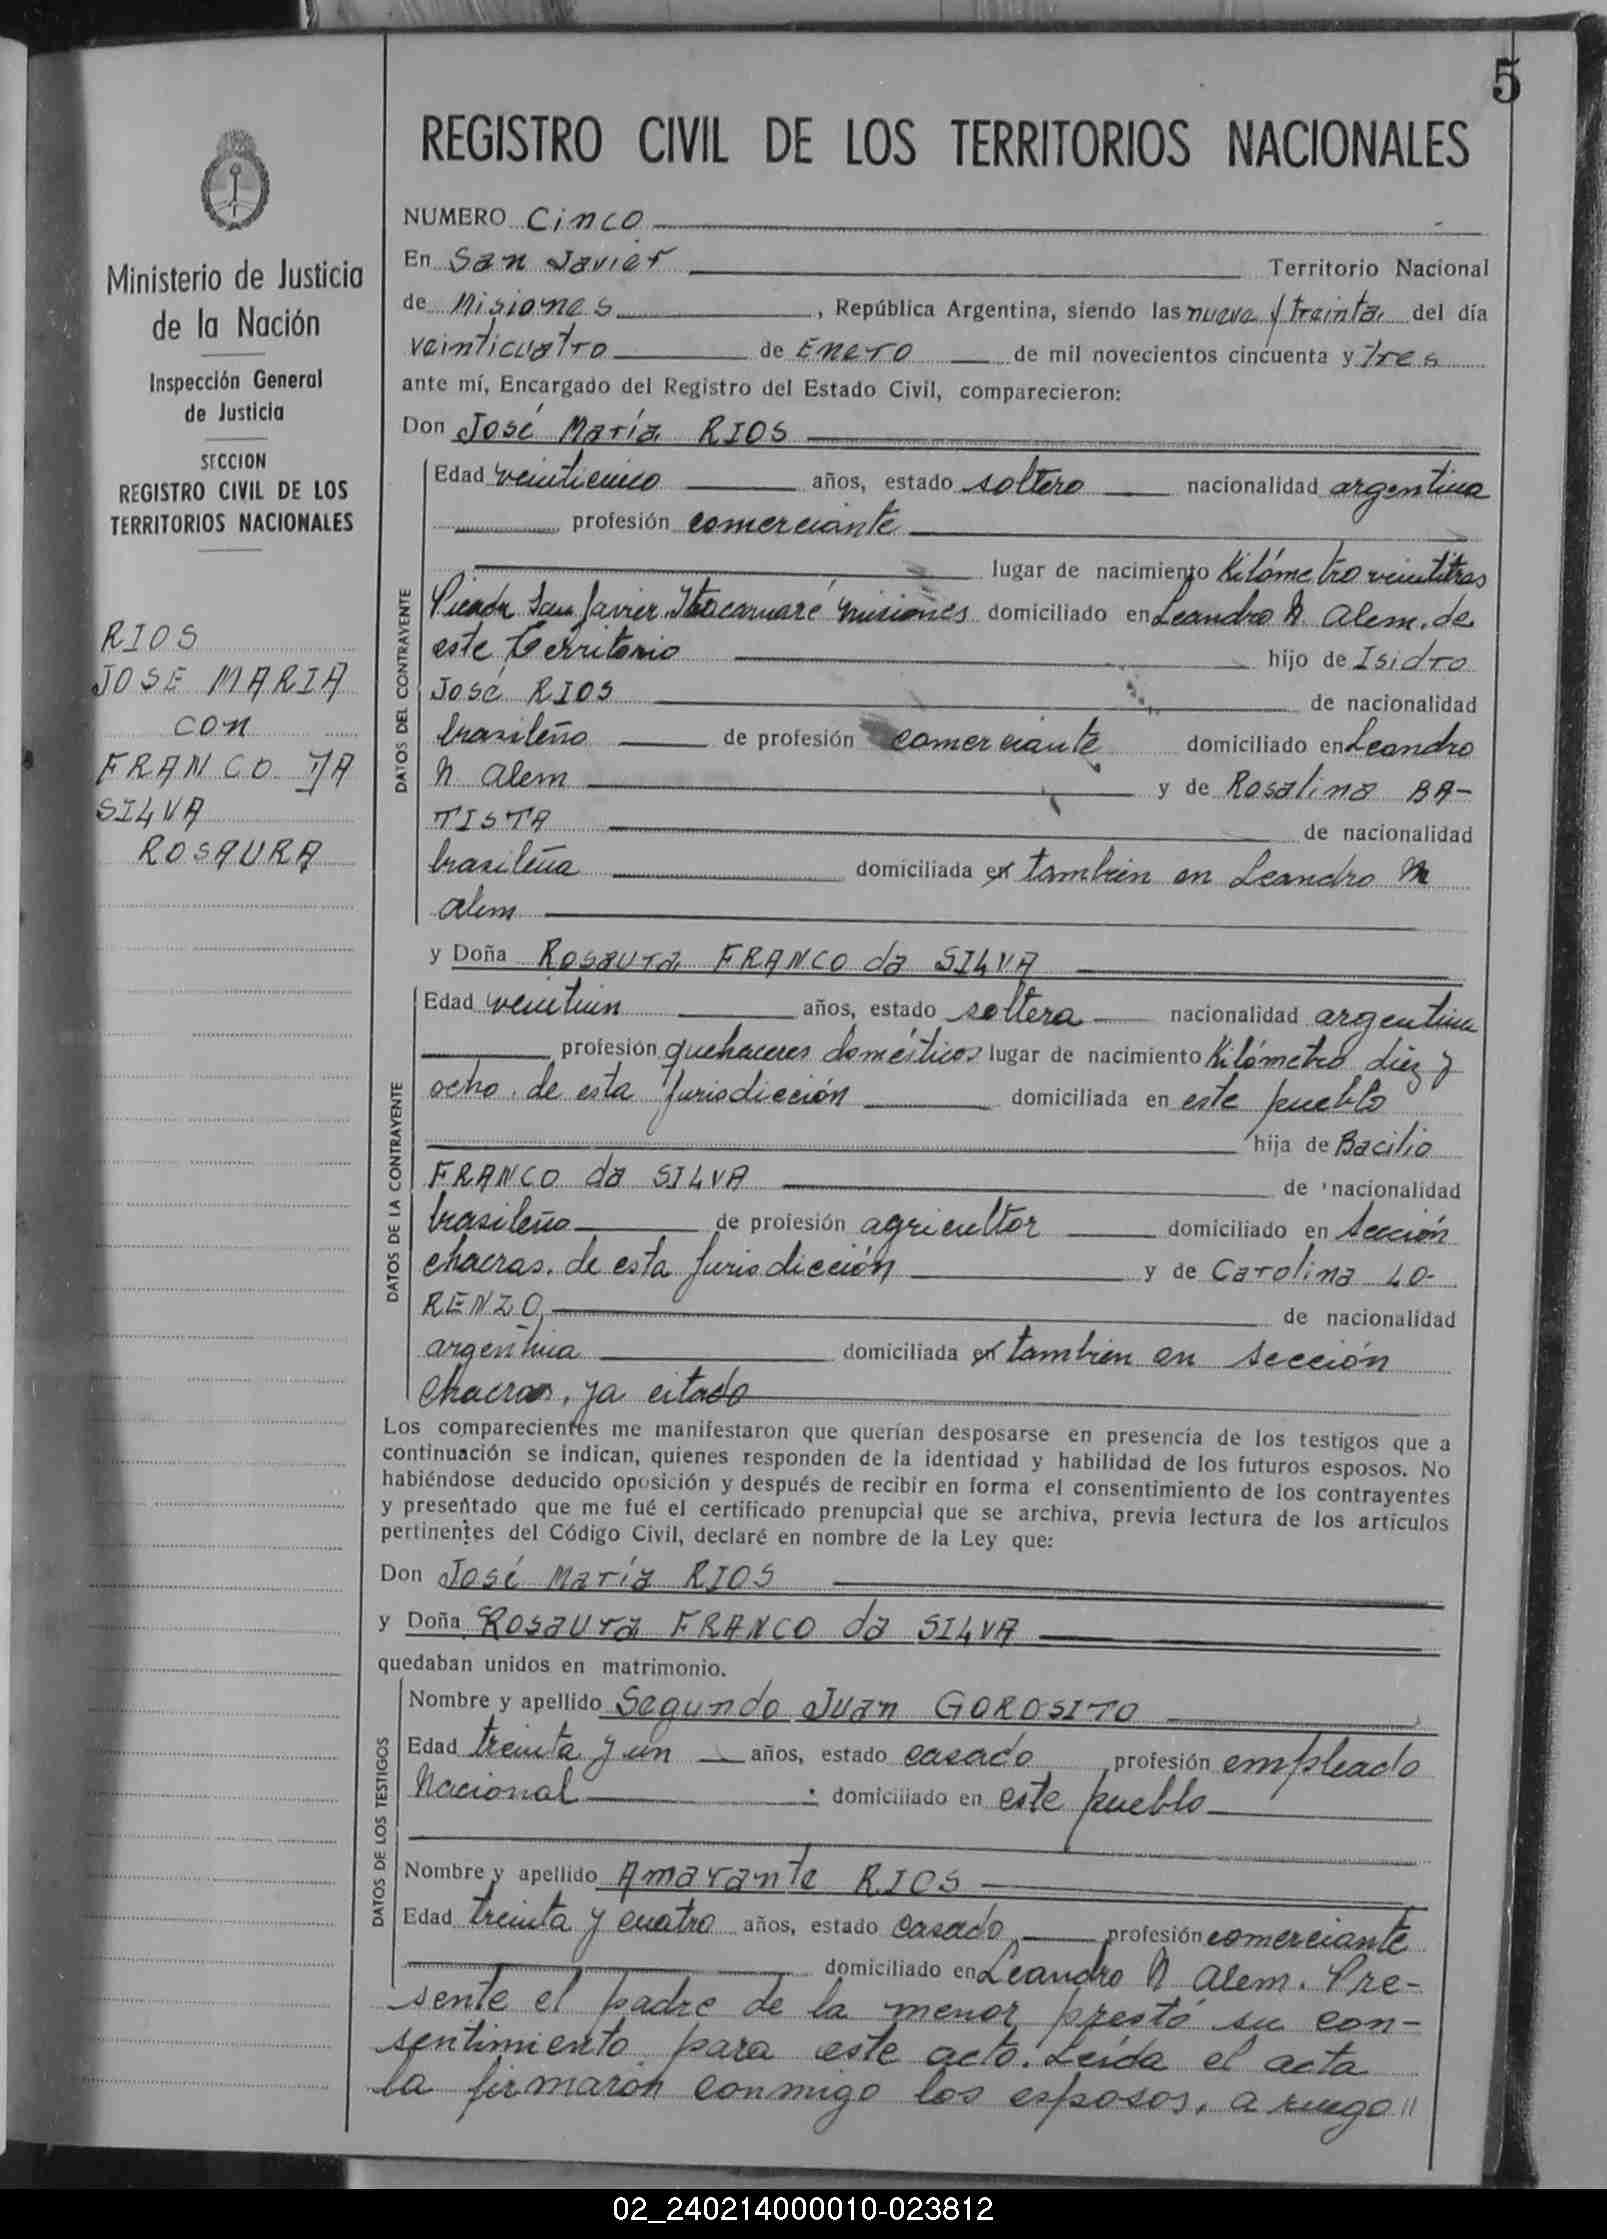 5
REGISTRO CIVIL DE LOS TERRITORIOS NACIONALES
Ministerio de Justicia
de la Nación
Inspección General
de Justicia
SECCION
REGISTRO CIVIL DE LOS
TERRITORIOS NACIONALES
RIOS
JOSE MARIA
con
FRANCO DA
SILVA
ROSAURA
NUMERO Cinco
En San Javier Territorio Nacional
de Misiones, República Argentina, siendo las nueve y treinta, del día
veinticuatro de Enero de mil novecientos cincuenta y tres
ante mí, Encargado del Registro del Estado Civil, comparecieron:
Don José María RIOS
DATOS DEL CONTRAYENTE
Edad veinticinco años, estado soltero nacionalidad argentina
profesión comerciante
lugar de nacimiento Kilómetro veintitres
Picada San Javier Itacaruaré Misiones domiciliado en Leandro N. Alem, de
este territorio hijo de Isidro
José RIOS de nacionalidad
brasileño de profesión comerciante domiciliado en Leandro
N Alem y de Rosalina BA-
TISTA de nacionalidad
brasileña domiciliada en tambien en Leandro N
Alem
y Doña Rosaura FRANCO da SILVA
DATOS DE LA CONTRAYENTE
Edad veintiun años, estado soltera nacionalidad argentina
profesión quehaceres domésticos lugar de nacimiento Kilómetro diez y
ocho, de esta jurisdicción domiciliada en este pueblo
hija de Bacilio
FRANCO da SILVA de nacionalidad
brasileño de profesión agricultor domiciliado en Sección
chacras, de esta jurisdicción y de Carolina LO-
RENZO, de nacionalidad
argentina domiciliada en tambien en Sección
chacras, ya citado
Los comparecientes me manifestaron que querían desposarse en presencia de los testigos que a
continuación se indican, quienes responden de la identidad y habilidad de los futuros esposos. No
habiéndose deducido oposición y después de recibir en forma el consentimiento de los contrayentes
y presentado que me fué el certificado prenupcial que se archiva, previa lectura de los artículos
pertinentes del Código Civil, declaré en nombre de la Ley que:
Don José María RIOS
y Doña Rosaura FRANCO da SILVA
quedaban unidos en matrimonio.
DATOS DE LOS TESTIGOS
Nombre y apellido Segundo Juan GOROSITO
Edad treinta y un años, estado casado profesión empleado
Nacional domiciliado en este pueblo
Nombre y apellido Amarante RIOS
Edad treinta y cuatro años, estado casado profesión comerciante
domiciliado en Leandro N Alem. Pre-
sente el padre de la menor prestó su con-
sentimiento para este acto. Leída el acta
la firmaron conmigo los esposos, a ruego //
02_240214000010-023812